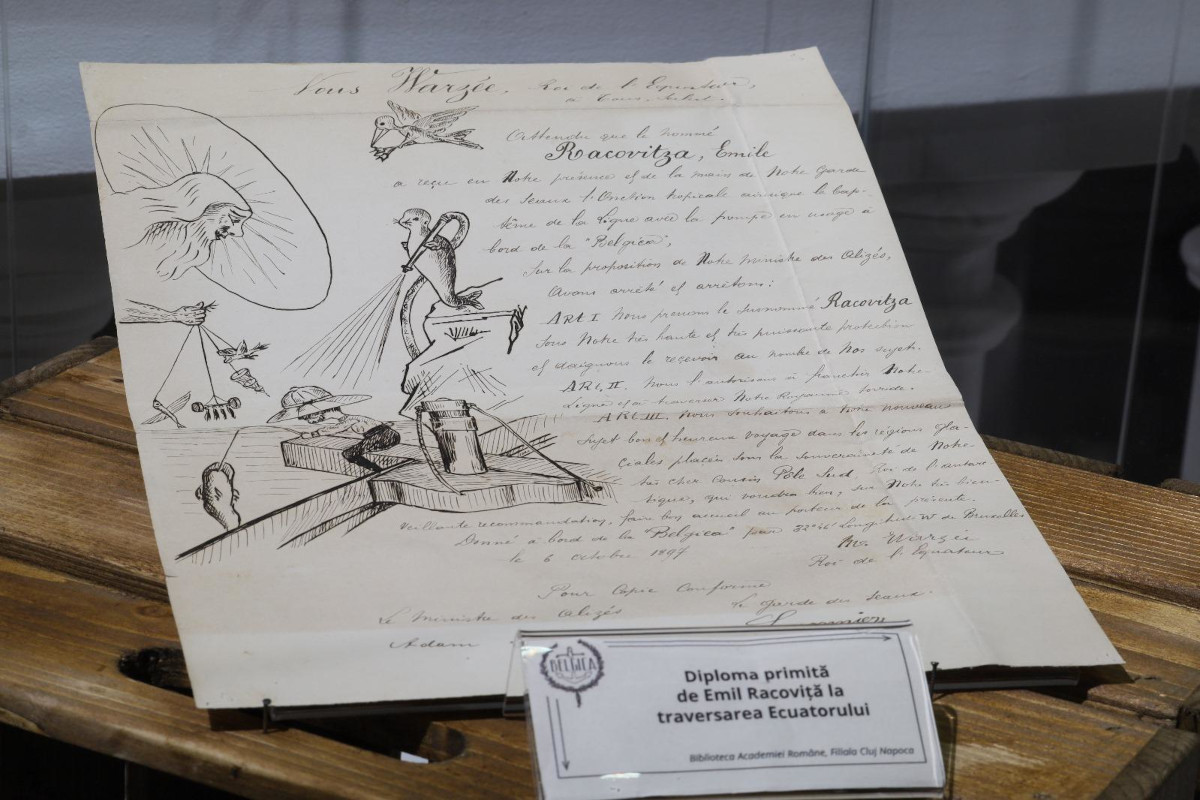 Nous Warzée, Roi de l'Equateur,
à tous, Salut.
Attendu que le nommé
Racovitza, Emile
a reçu en Notre présence et de la main de Notre Garde
des Sceaux l'Onction tropicale ainsi que le bap-
tême de la Ligne avec la pompe en usage à
bord de la "Belgica",
Sur la proposition de Notre Ministre des Alizés,
Avons arrêté et arrêtons:
ART I. Nous prenons le surnommé Racovitza
sous Notre très haute et très puissante protection
et daignons le recevoir au nombre de Nos sujets.
ART. II. Nous l'autorisons à franchir Notre
Ligne et à traverser Notre Royaume torride.
ART. III. Nous souhaitons à Notre nouveau
Sujet bon et heureux voyage dans les régions gla-
ciales placées sous la souveraineté de Notre
très cher Cousin Pôle Sud, Roi de l'antarc
tique, qui voudra bon, sur Notre très bien-
veillante recommandation, faire bon accueil au porteur de la présente.
Donné à bord de la "Belgica" par 32°46' Longitude W de Bruxelles
le 6 octobre 1897
Warzée
Roi de l'Equateur
Pour Copie Conforme
Le Ministre des Alizés
Le Garde des Sceaux
Adam
BELGICA
Diploma primită
de Emil Racoviță la
traversarea Ecuatorului
Biblioteca Academiei Române, Filiala Cluj Napoca